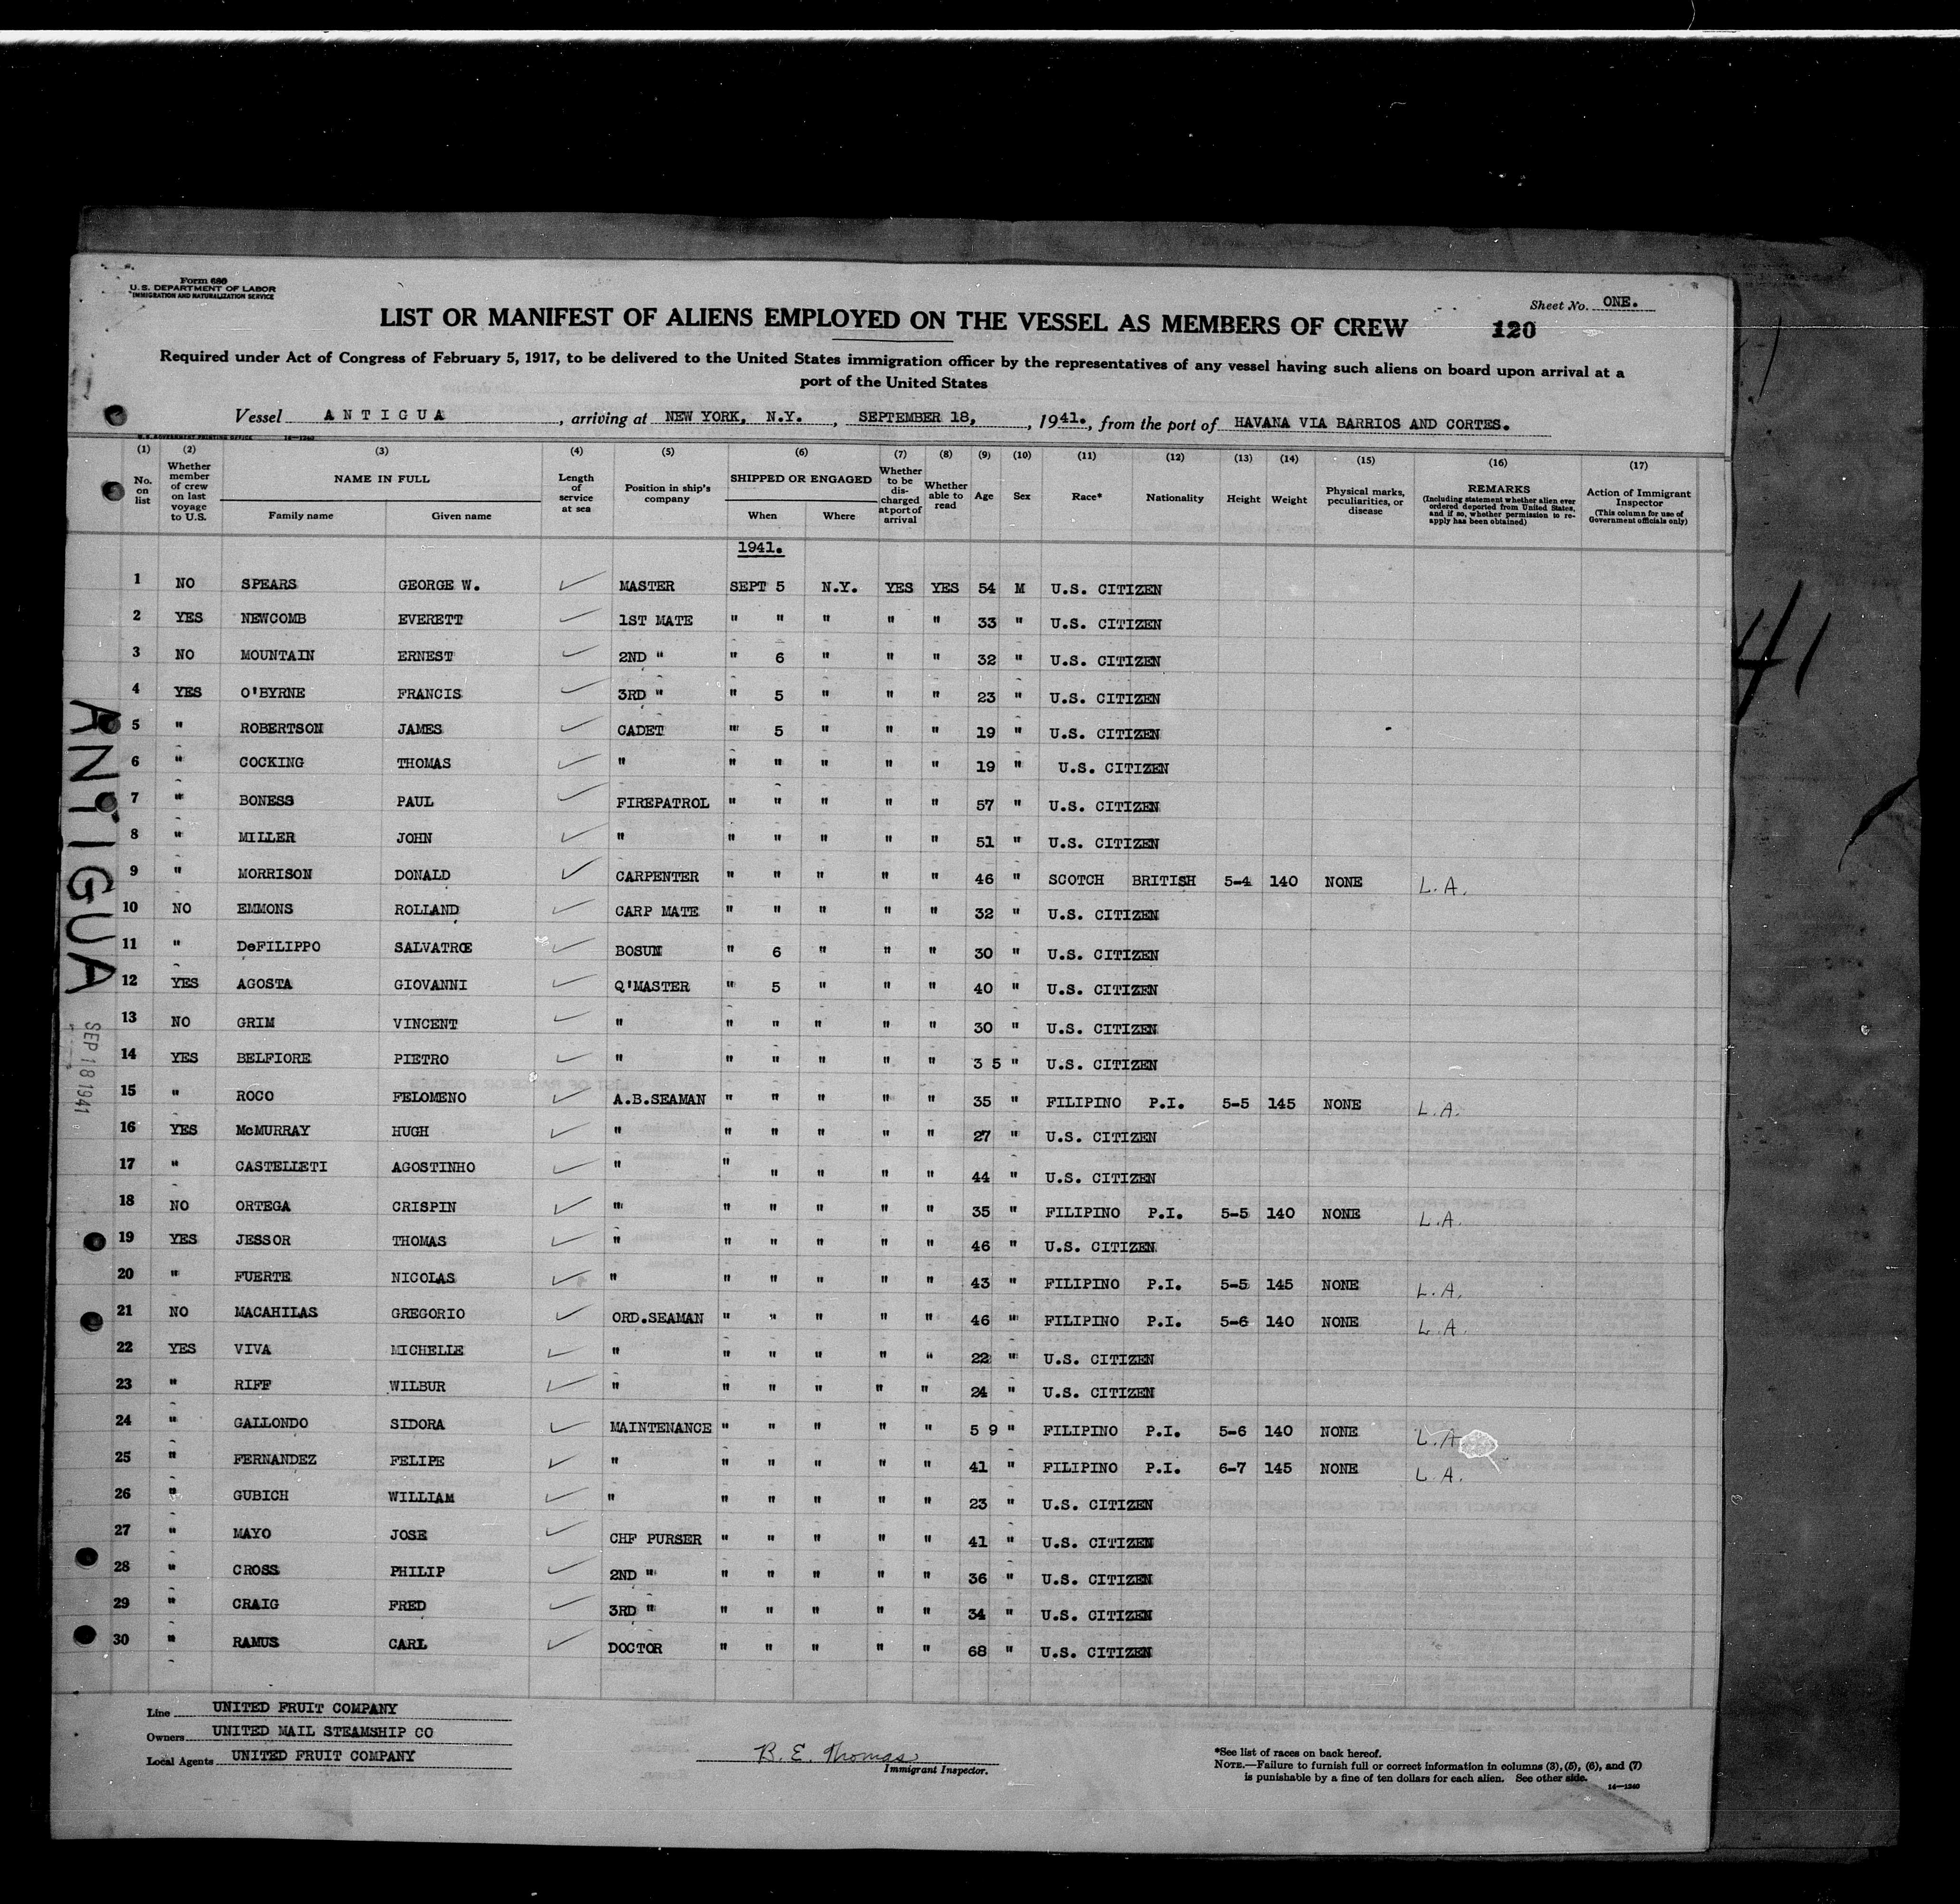 Form 680
U.S. DEPARTMENT OF LABOR
IMMIGRATION AND NATURALIZATION SERVICE
Sheet No. ONE.
LIST OR MANIFEST OF ALIENS EMPLOYED ON THE VESSEL AS MEMBERS OF CREW 120
Required under Act of Congress of February 5, 1917, to be delivered to the United States immigration officer by the representatives of any vessel having such aliens on board upon arrival at a
port of the United States
Vessel ANTIGUA, arriving at NEW YORK, N.Y., SEPTEMBER 18, 1941., from the port of HAVANA VIA BARRIOS AND CORTES.
U.S. GOVERNMENT PRINTING OFFICE 14—1240
(1) No. on list
(2) Whether member of crew on last voyage to U.S.
(3) NAME IN FULL Family name Given name
(4) Length of service at sea
(5) Position in ship's company
(6) SHIPPED OR ENGAGED When Where
(7) Whether to be discharged at port of arrival
(8) Whether able to read
(9) Age
(10) Sex
(11) Race*
(12) Nationality
(13) Height
(14) Weight
(15) Physical marks, peculiarities, or disease
(16) REMARKS (Including statement whether alien ever ordered deported from United States, and if so, whether permission to re-apply has been obtained)
(17) Action of Immigrant Inspector (This column for use of Government officials only)
1941.
1 NO SPEARS GEORGE W. ✓ MASTER SEPT 5 N.Y. YES YES 54 M U.S. CITIZEN
2 YES NEWCOMB EVERETT ✓ 1ST MATE " " " " " 33 " U.S. CITIZEN
3 NO MOUNTAIN ERNEST ✓ 2ND " " 6 " " " 32 " U.S. CITIZEN
4 YES O'BYRNE FRANCIS ✓ 3RD " " 5 " " " 23 " U.S. CITIZEN
5 " ROBERTSON JAMES ✓ CADET " 5 " " " 19 " U.S. CITIZEN
6 " COCKING THOMAS ✓ " " " " " " 19 " U.S. CITIZEN
7 " BONESS PAUL ✓ FIREPATROL " " " " " 57 " U.S. CITIZEN
8 " MILLER JOHN ✓ " " " " " " 51 " U.S. CITIZEN
9 " MORRISON DONALD ✓ CARPENTER " " " " " 46 " SCOTCH BRITISH 5-4 140 NONE L.A.
10 NO EMMONS ROLLAND ✓ CARP MATE " " " " " 32 " U.S. CITIZEN
11 " DeFILIPPO SALVATROE ✓ BOSUN " 6 " " " 30 " U.S. CITIZEN
12 YES AGOSTA GIOVANNI ✓ Q'MASTER " 5 " " " 40 " U.S. CITIZEN
13 NO GRIM VINCENT ✓ " " " " " " 30 " U.S. CITIZEN
14 YES BELFIORE PIETRO ✓ " " " " " " 3 5 " U.S. CITIZEN
15 " ROCO FELOMENO ✓ A.B.SEAMAN " " " " " 35 " FILIPINO P.I. 5-5 145 NONE L.A.
16 YES McMURRAY HUGH ✓ " " " " " " 27 " U.S. CITIZEN
17 " CASTELLETI AGOSTINHO ✓ " " " " " " 44 " U.S. CITIZEN
18 NO ORTEGA CRISPIN ✓ " " " " " " 35 " FILIPINO P.I. 5-5 140 NONE L.A.
19 YES JESSOR THOMAS ✓ " " " " " " 46 " U.S. CITIZEN
20 " FUERTE NICOLAS ✓ " " " " " " 43 " FILIPINO P.I. 5-5 145 NONE L.A.
21 NO MACAHILAS GREGORIO ✓ ORD.SEAMAN " " " " " 46 " FILIPINO P.I. 5-6 140 NONE L.A.
22 YES VIVA MICHELLE ✓ " " " " " " 22 " U.S. CITIZEN
23 " RIFF WILBUR ✓ " " " " " " 24 " U.S. CITIZEN
24 " GALLONDO SIDORA ✓ MAINTENANCE " " " " " 5 9 " FILIPINO P.I. 5-6 140 NONE L.A.
25 " FERNANDEZ FELIPE ✓ " " " " " " 41 " FILIPINO P.I. 6-7 145 NONE L.A.
26 " GUBICH WILLIAM ✓ " " " " " " 23 " U.S. CITIZEN
27 " MAYO JOSE ✓ CHF PURSER " " " " " 41 " U.S. CITIZEN
28 " CROSS PHILIP ✓ 2ND " " " " " " 36 " U.S. CITIZEN
29 " CRAIG FRED ✓ 3RD " " " " " " 34 " U.S. CITIZEN
30 " RAMUS CARL ✓ DOCTOR " " " " " 68 " U.S. CITIZEN
ANTIGUA
SEP 18 1941
41
Line UNITED FRUIT COMPANY
Owners UNITED MAIL STEAMSHIP CO
Local Agents UNITED FRUIT COMPANY
R. E. Thomas
Immigrant Inspector.
*See list of races on back hereof.
NOTE.—Failure to furnish full or correct information in columns (3), (5), (6), and (7)
is punishable by a fine of ten dollars for each alien. See other side.
14—1240